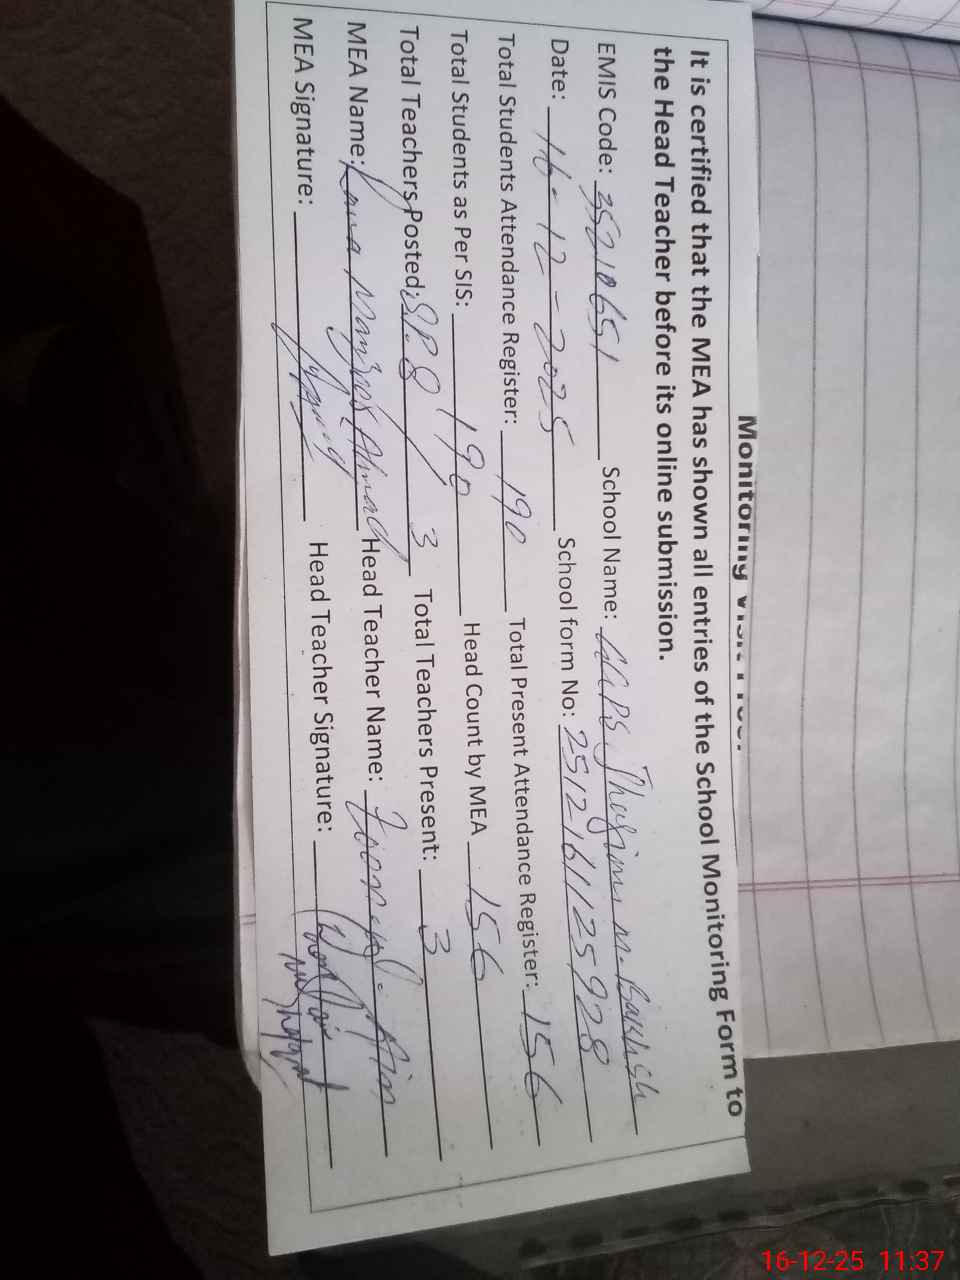 It is certified that the MEA has shown all entries of the School Monitoring Form to
the Head Teacher before its online submission.
EMIS Code: 35210651 School Name: Jhugian M. Bakhsh
Date: 16-12-2025 School form No: 2512161125928
Total Students Attendance Register: 190 Total Present Attendance Register: 156
Total Students as Per SIS: 190 Head Count by MEA 156
Total Teachers Posted: 3 Total Teachers Present: 3
MEA Name: Rana Ahmad Head Teacher Name:
MEA Signature: Head Teacher Signature:
16-12-25 11:37